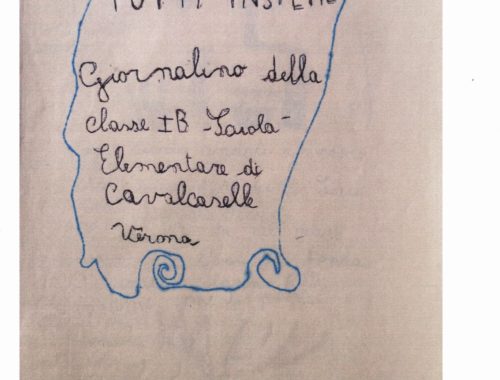 TUTTI INSIEME
Giornalino della
classe IB - Scuola -
Elementare di
Cavalcaselle
Verona